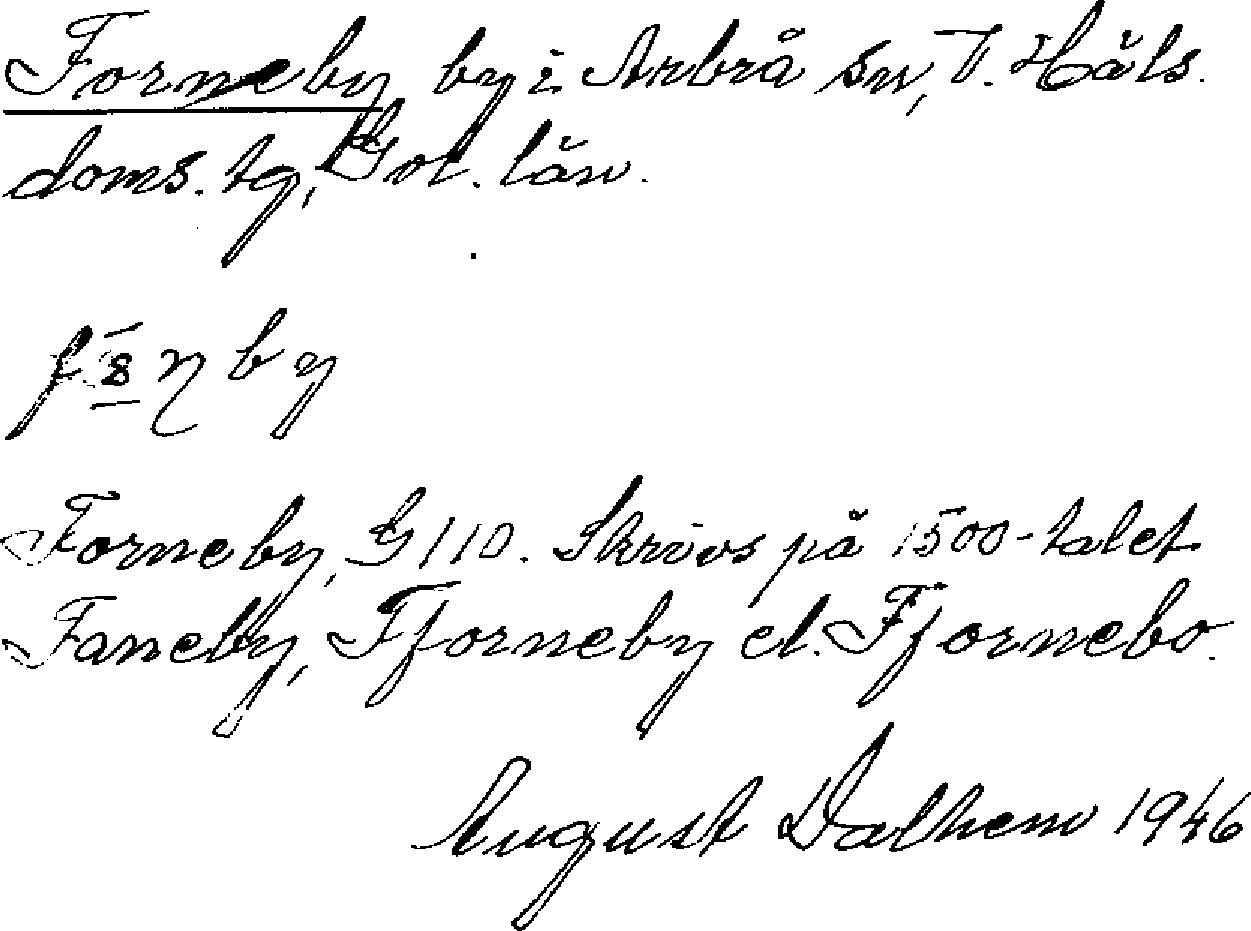 Forneby by i Arbrå sn, V. Häls.
doms. tg, Gvl. län.
by
Forneby, G 110. Skrivs på 1500-talet
Faneby, Fforneby el. Ffornebo.
August Dalhem 1946